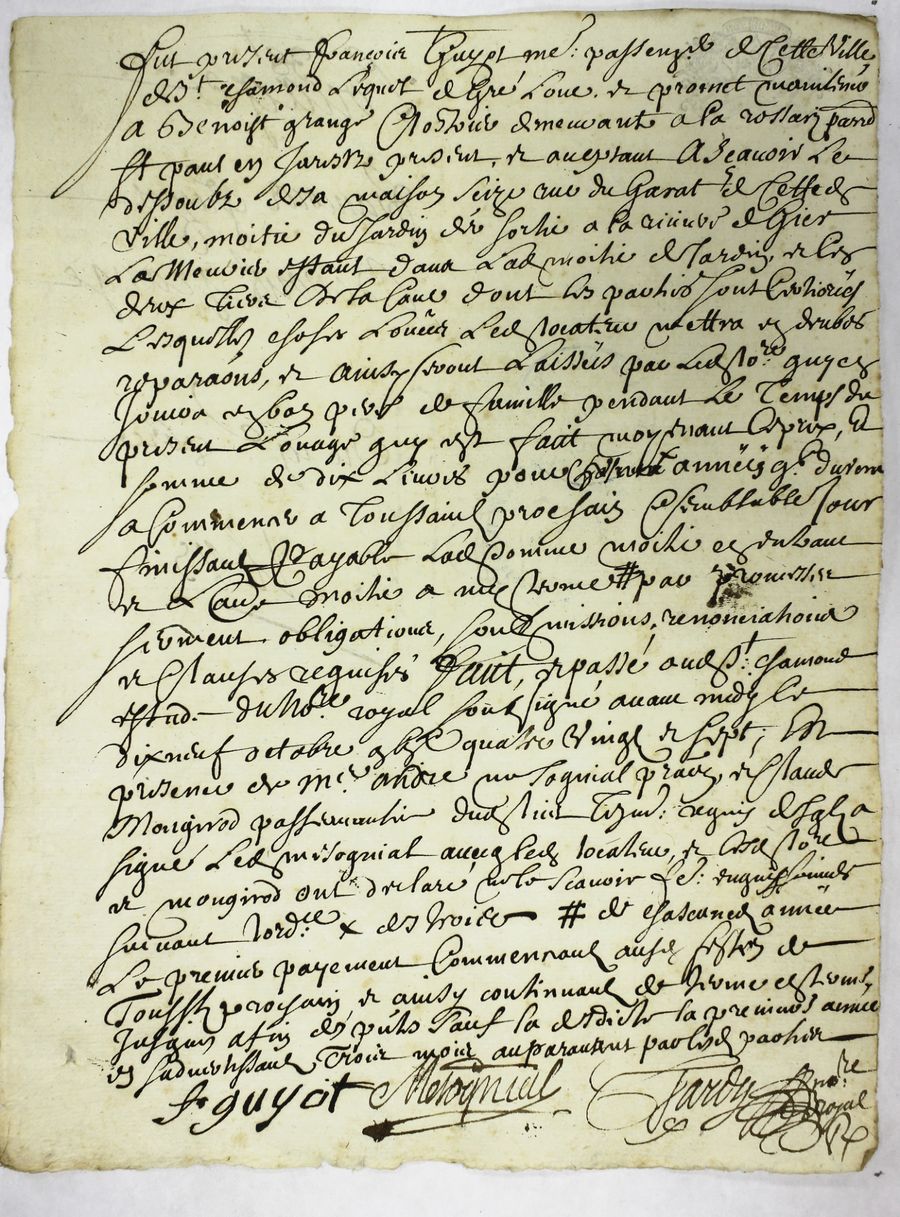 Fut present François Guyot me: passeng.r de cette Ville
de St chamond Lequel de gré Loue et promet maintenir
a Benoist grange Clostrier demeurant a la rossary parr.
St paul en Jarestz present, et aceptant A scavoir Le
dessoubz de sa maison seize rue du Garat de Cette de
Ville, moitié du Jardin de sortie a la riviere de Gier
La Meuriere estant dans Lad moitié de Jardin, et les
deux tiers De la Cave dont les parties sont Certiorées
Lesquelles choses Louées Led locataire mettra en deubes
reparaõns, et ainsy seront Laissées par Led
Jouira en bon pere de famille pendant Le Temps du
present Louage quy est faict moyenant Le prix, et
somme de dix Livres pour chascune année
a Commencer a Toussainct prochain et semblable Jour
finissant Payable Lad somme moitié
et L'autre moitié a my terme # par Promesses
serment obligations, soubmissions, renonciations
et Clauses requises faict, et passé aud St: chamond
estude du no.re royal soubsigné avant midy le
dix neuf octobre quatre vingt et sept, En
presence de m.e andre mesognial praticien et Claude
Mongirod passemantier dud st chamond tesm: requis
signé Led mesognial avecq led locateur, et Led
et mongirod ont declaré ne le scavoir de: enquis sommés
suivant lord.ce # de chascune année
Le premier payement Commenceant aud festes de
Toussts prochain, et ainsy continuant de terme en terme
Jusques a fin de sauf la desdicte la premiere année
en sadvertissant Trois mois auparavant par Lesd parties
f guyot Mesognial Jardy no.re royal